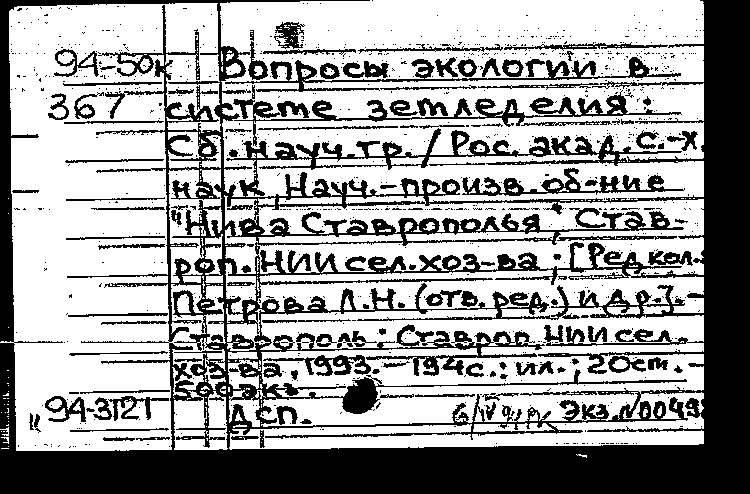 94-50к Вопросы экологии в
367 системе земледелия:
Сб. науч. тр. / Рос. акад. с.-х.
наук, Науч.-произв. об-ние
"Нива Ставрополья", Став-
роп. НИИ сел. хоз-ва; [Редкол.:
Петрова Л.Н. (отв. ред.) и др.]. -
Ставрополь: Ставроп. НИИ сел.
хоз-ва, 1993. - 194с.: ил.; 20см. -
500экз.
94-3121 ДСП. Экз. N00498